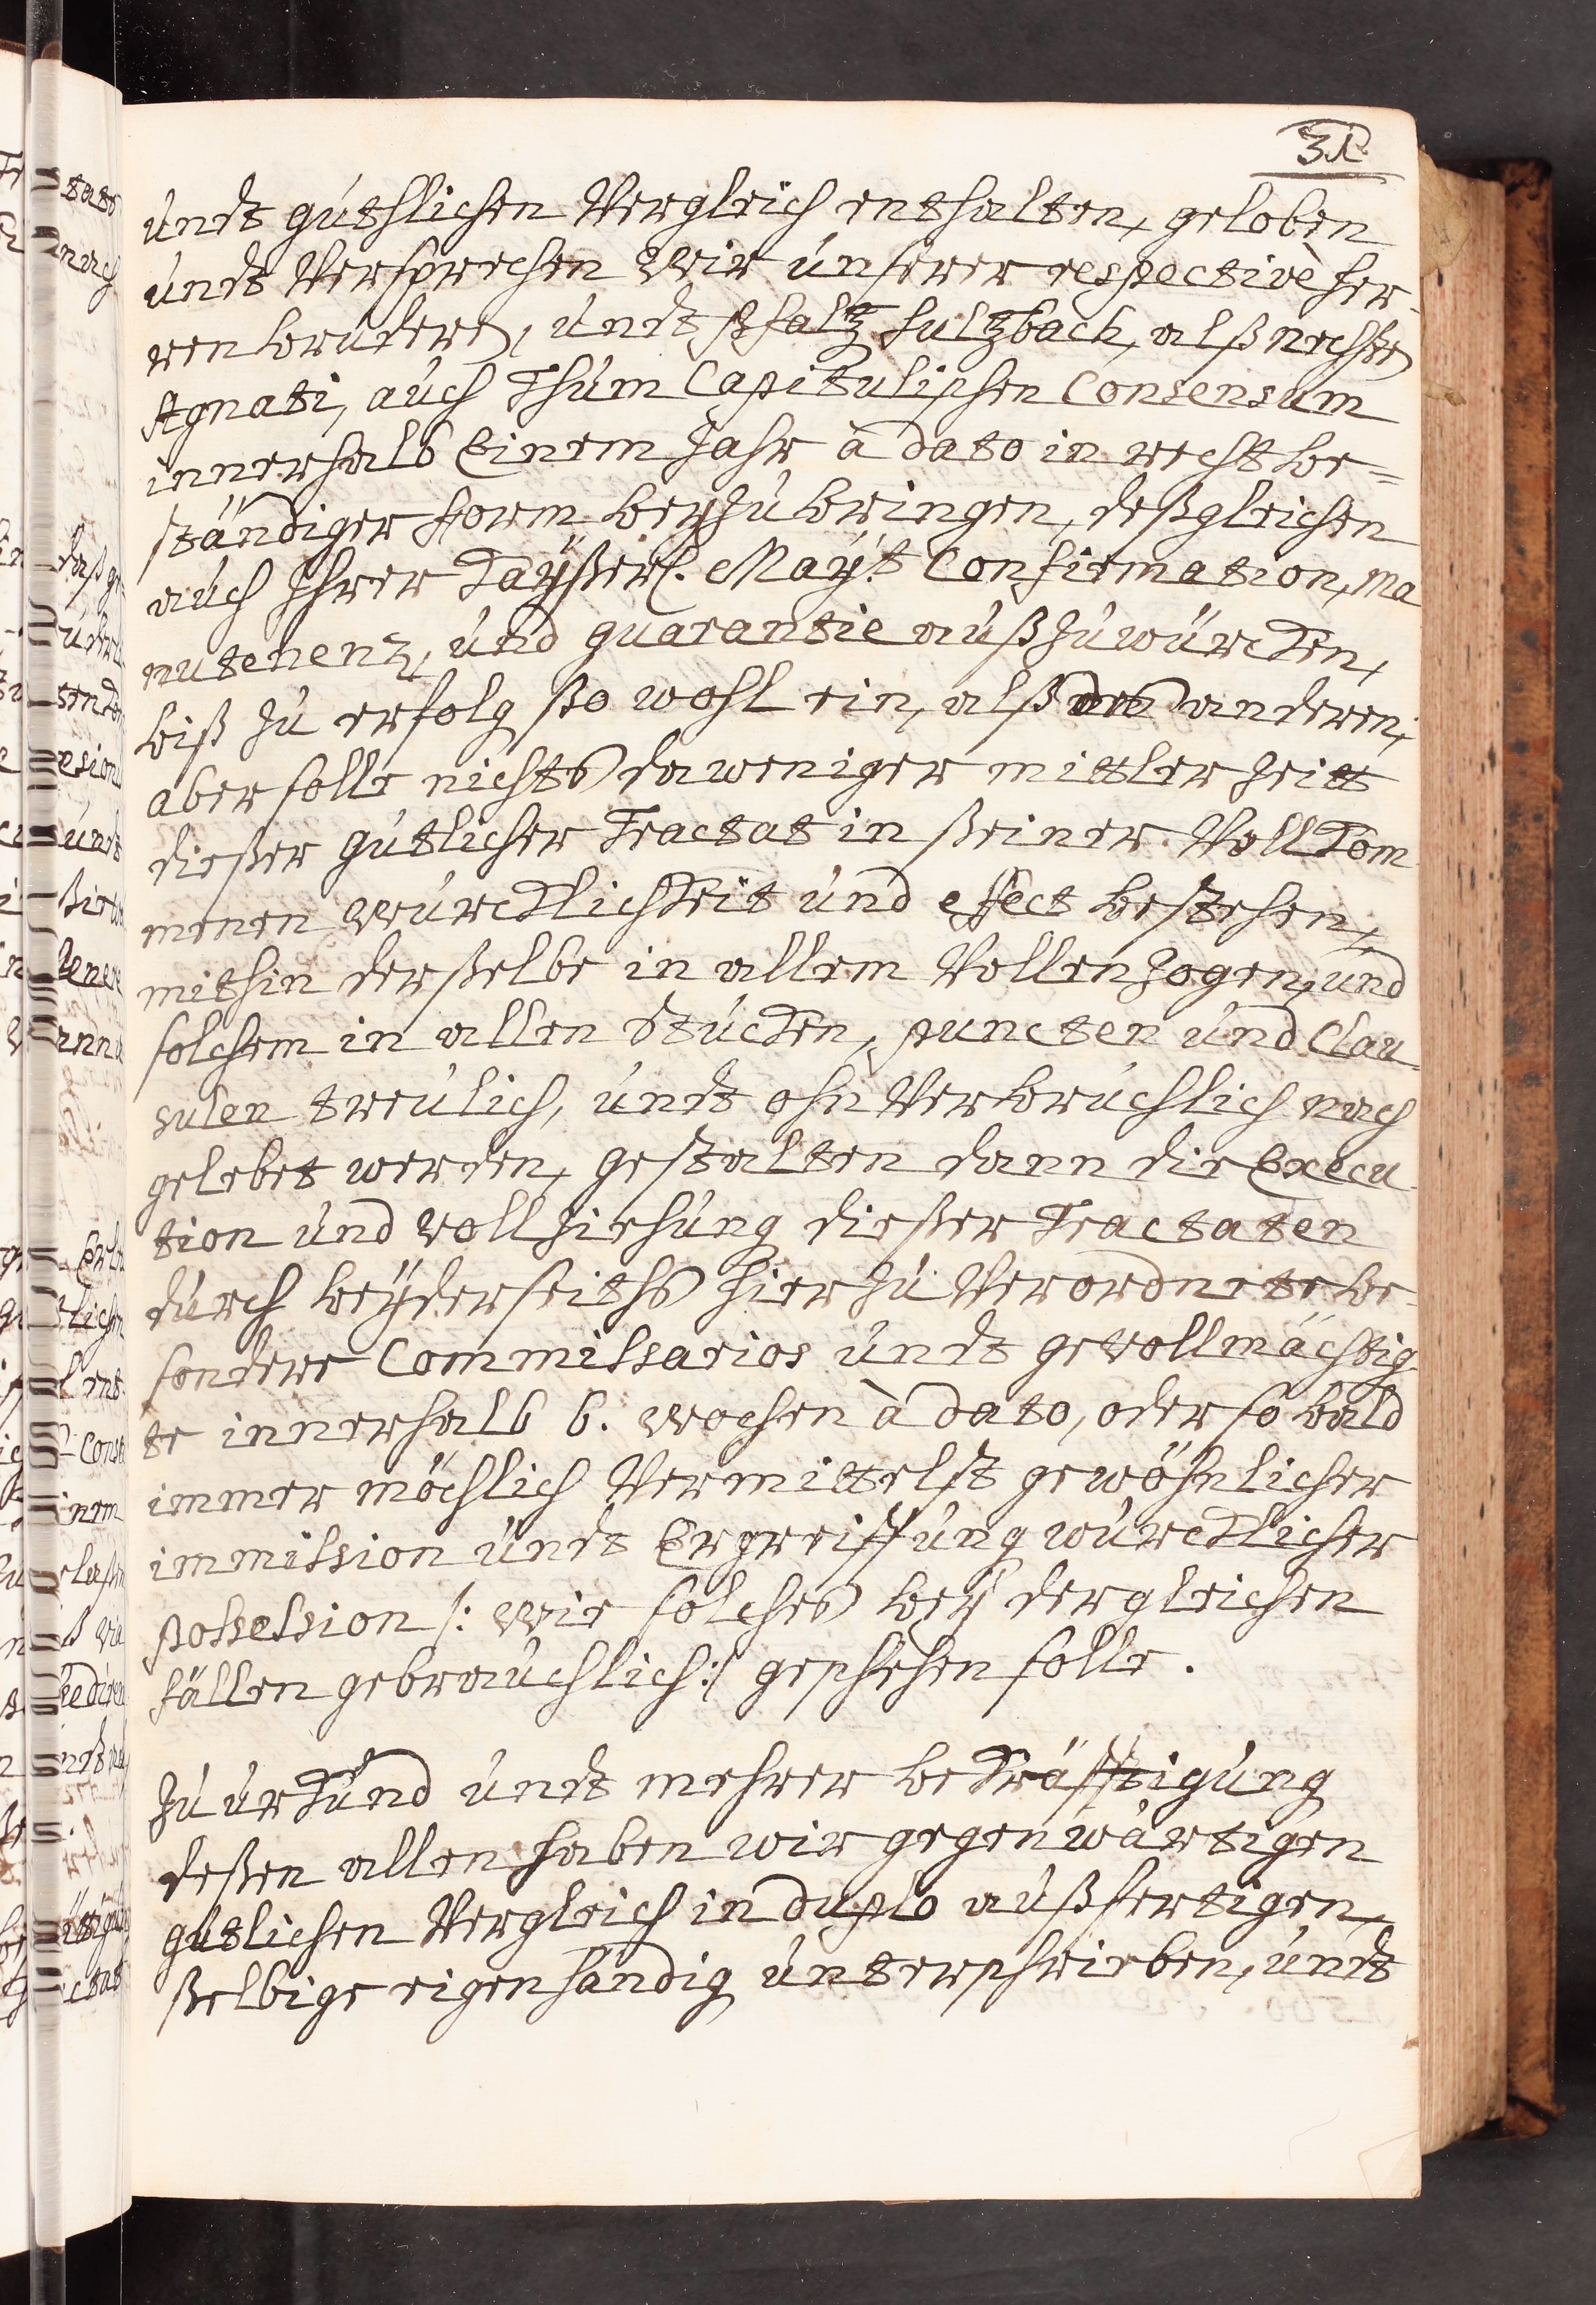 31.
undt güthlichen Vergleich enthalten, geloben
undt Versprechen Wir unserer respectivè her-
ren brudere, undt Pfaltz Sulzback, alß nechste
Agnati, auch Thum Capitulischen Consensum
innerhalb Einem Jahr à dato in recht be=
ständiger form beyzubringen, deßgleichen
auch Ihrer Kayßerl. Mayt. Confirmation, ma
nutenenz, und guarantie außzuwürcken,
biß zu erfolg ßo wohl ein, alß des anderen,
aber solle nichts daweniger mittler Zeitt
dießer gütlicher Tractat in ßeiner Vollkom
menen Würcklichkeit und effect bestehen,
mithin derßelbe in allem Vollenzogen, und
solchem in allen Stücken, puncten und Clau-
sulen treulich, undt ohn Verbruchlich nach
gelebet werden, gestalten dann die Execu-
tion und vollziehung dießer Tractaten
durch beyderseiths hierzu Verordnete be-
sondere Commissarios undt gevollmächtig-
te innerhalb 6. wochen à dato, oder so bald
immer möchlich Vermittelst gewöhnlicher
immission undt Ergreiffung würcklicher
possession /: wie solches bey dergleichen
fällen gebräuchlich :/ geschehen solle.
Zu urkund undt mehrer bekräfftigung
deßen allen haben wir gegenwärtigen
gütlichen Vergleich in duplo außfertigen,
ßelbige eigenhändig unterschrieben, undt